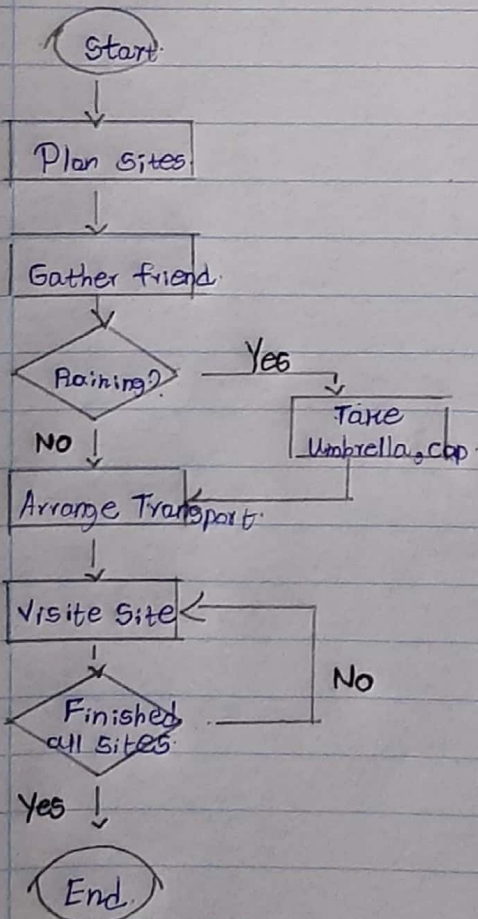 Start
Plan sites
Gather friend.
Raining?
Yes
Take
Umbrella, cap
NO
Arrange Transport.
Visite Site
No
Finished
all sites.
Yes
End.